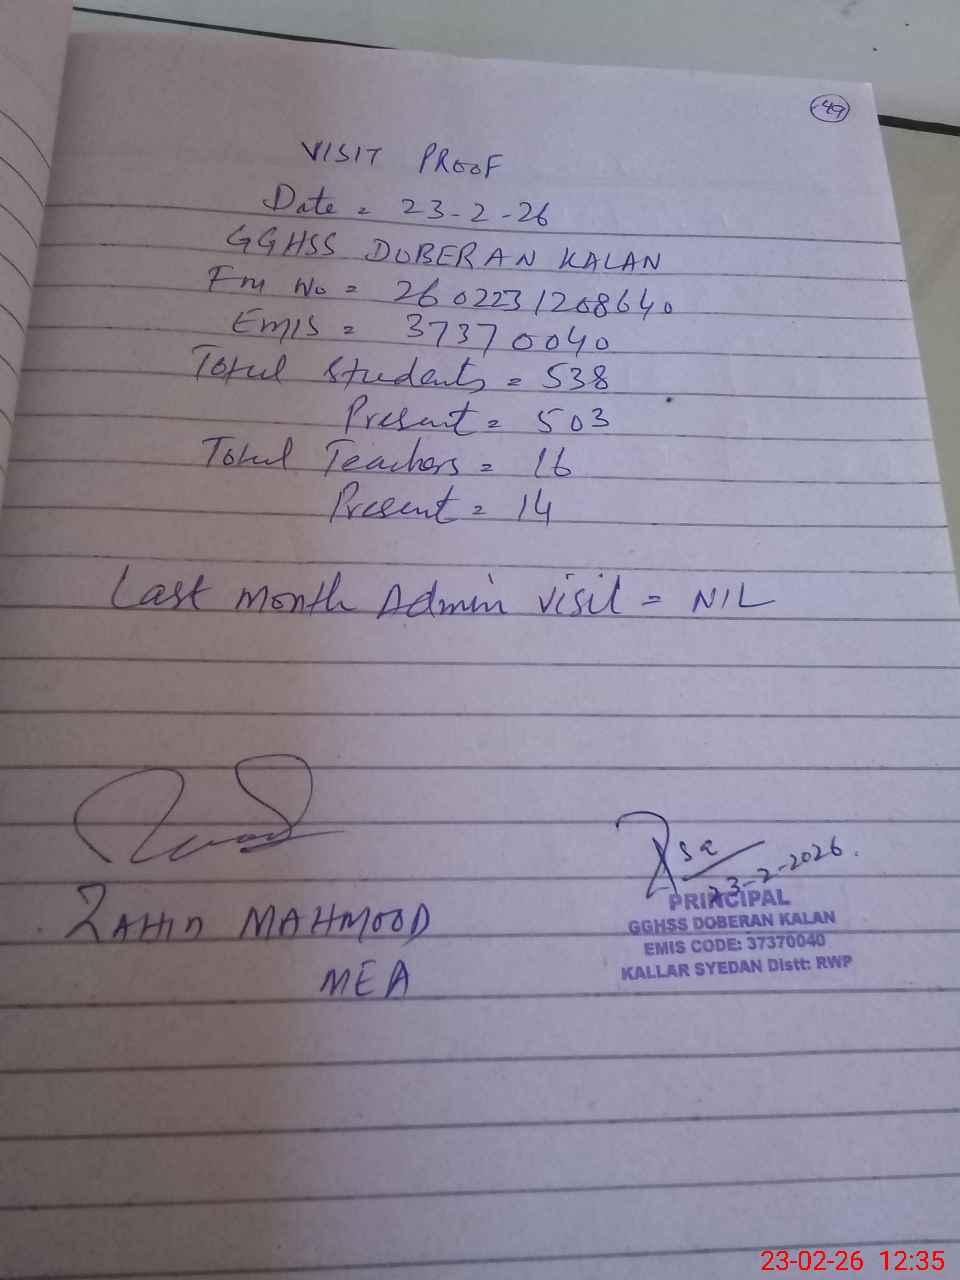 49
VISIT PROOF
Date = 23-2-26
GGHSS DOBERAN KALAN
Fm No = 2602231208640
EMIS = 37370040
Total Students = 538
Present = 503
Total Teachers = 16
Present = 14
Last month Admin visit = NIL
23-2-2026.
ZAHID MAHMOOD
MEA
PRINCIPAL
GGHSS DOBERAN KALAN
EMIS CODE: 37370040
KALLAR SYEDAN Distt: RWP
23-02-26 12:35